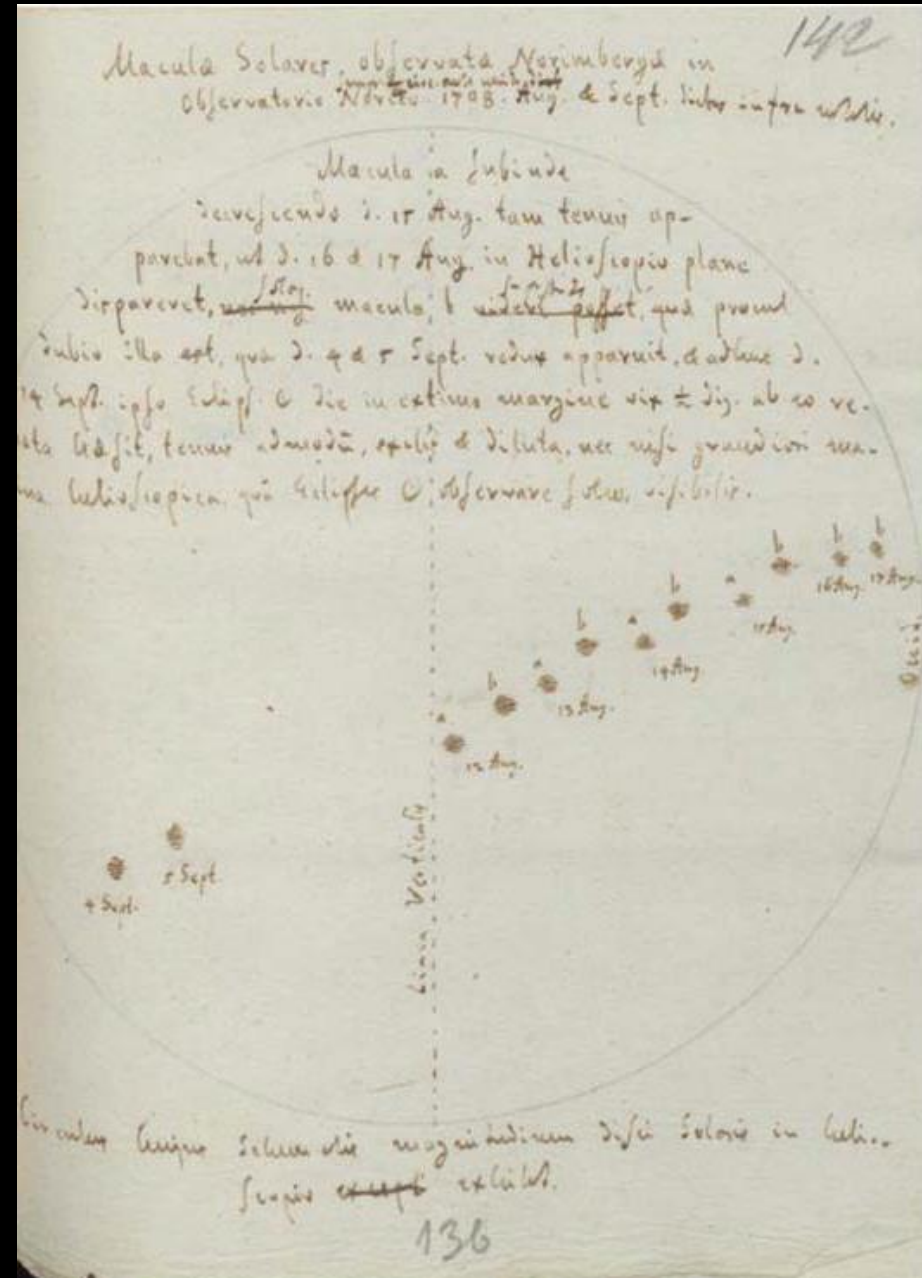 142
Maculæ Solares, observatæ Norimbergæ in
Observatorio 1708. Aug. & Sept. infra
Macula a subinde
decrescendo d. 15 Aug. tam tenuis ap-
parebat, ut d. 16 & 17 Aug. in Helioscopio plane
dispareret, macula, b quæ procul
dubio illa est, quæ d. 4 & 5 Sept. redux apparuit, & adhuc d.
14 Sept. ipso Eclips. ☉ die in extimo margine vix ½ dig. ab eo re-
tenuis admodū, exilis & diluta, nec nisi grandiori ma-
helioscopica, quâ Eclipses ☉ observare soleo, visibilis.
b b b
16 Aug. 17 Aug.
a
15 Aug.
b
a
14 Aug.
b
a
13 Aug.
b
a
12 Aug.
Linea Verticalis
5 Sept
4 Sept.
hujus Schematis magnitudinem disci Solaris in helio-
scopio exhibet.
136